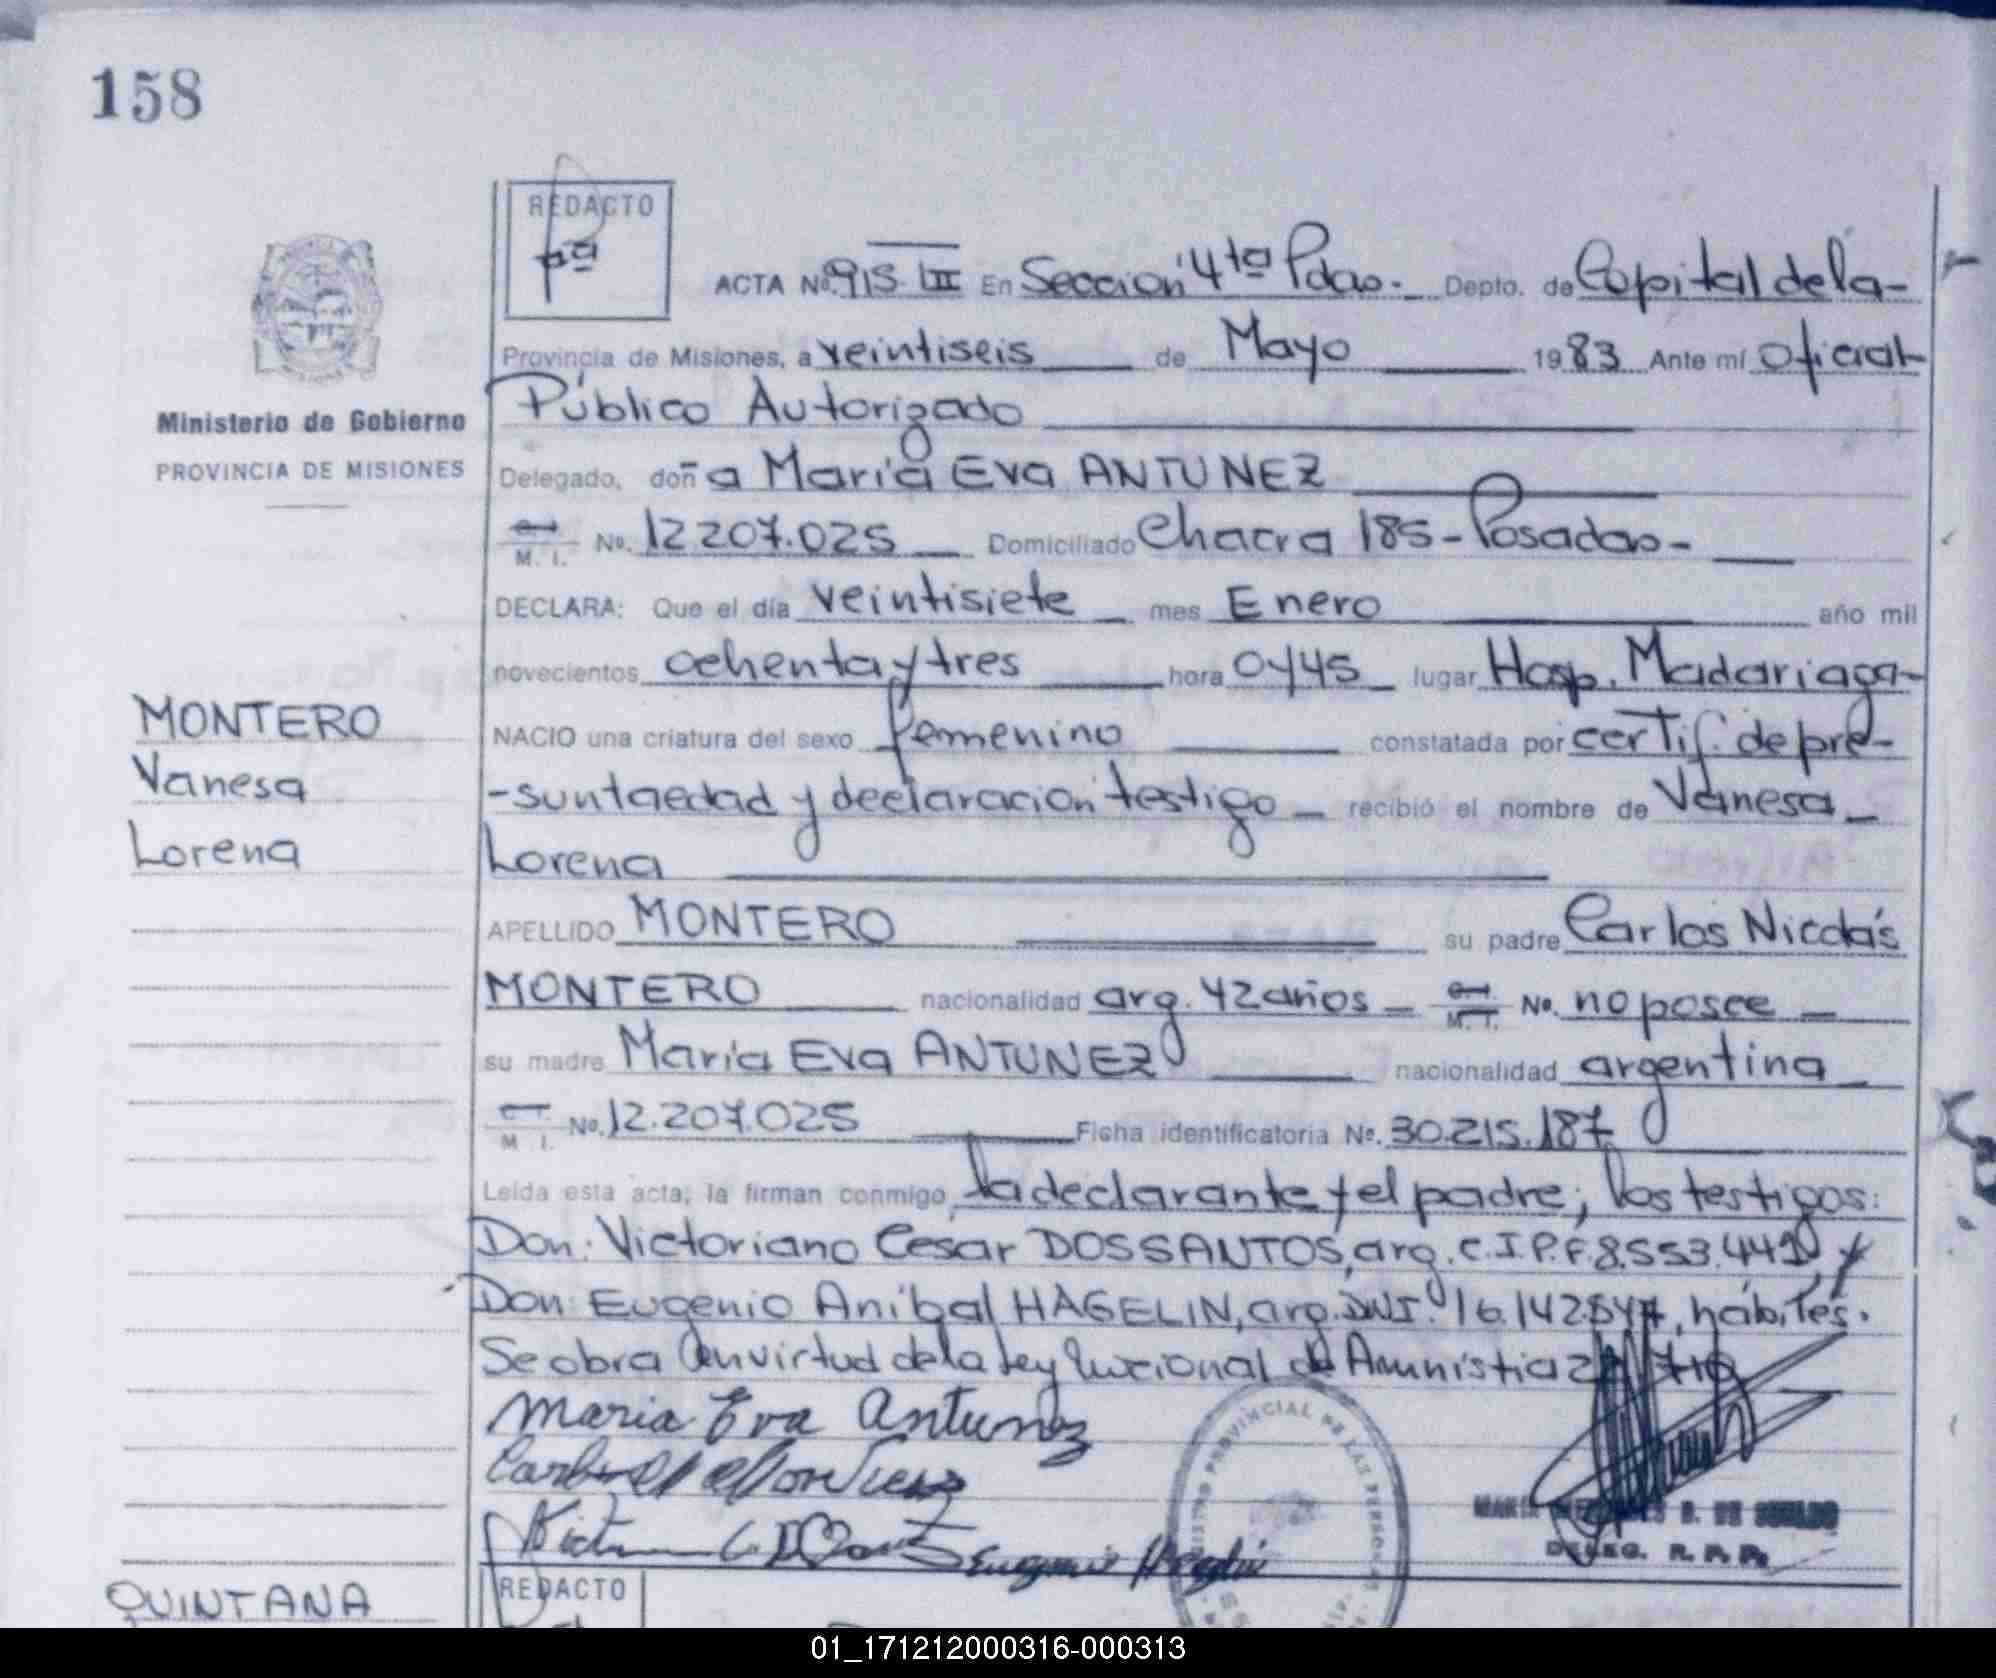 158
REDACTO
pª
ACTA Nº 915-LII En Sección 4ta Pdas.- Depto. de Capital de la-
Provincia de Misiones, a veintiseis de Mayo 1983 Ante mí Oficial
Público Autorizado
Ministerio de Gobierno
PROVINCIA DE MISIONES
Delegado, doña María Eva ANTUNEZ
M. I. No. 12.207.025 Domiciliado Chacra 185-Posadas-
DECLARA: Que el día veintisiete mes Enero año mil
novecientos ochenta y tres hora 0y45 lugar Hosp. Madariaga-
MONTERO
Vanesa
Lorena
NACIO una criatura del sexo femenino constatada por certif. de pre-
-sunta edad y declaración testigo recibió el nombre de Vanesa
Lorena
APELLIDO MONTERO su padre Carlos Nicolás
MONTERO nacionalidad arg. 42 años M. I. No. no posee
su madre María Eva ANTUNEZ nacionalidad argentina
M I. No. 12.207.025 Ficha identificatoria No. 30.215.187
Leída esta acta, la firman conmigo, la declarante y el padre; los testigos:
Don: Victoriano Cesar DOSSANTOS, arg. C.I.P.F. y
Don: Eugenio Aníbal HAGELIN, arg. DNI. hábiles.
Se obra en virtud de la Ley Nacional de Amnistia
Maria Eva Antunez
Eugenio Hagelin
REGISTRO PROVINCIAL DE LAS PERSONAS
DELEG. R. P. P.
QUINTANA
REDACTO
01_171212000316-000313